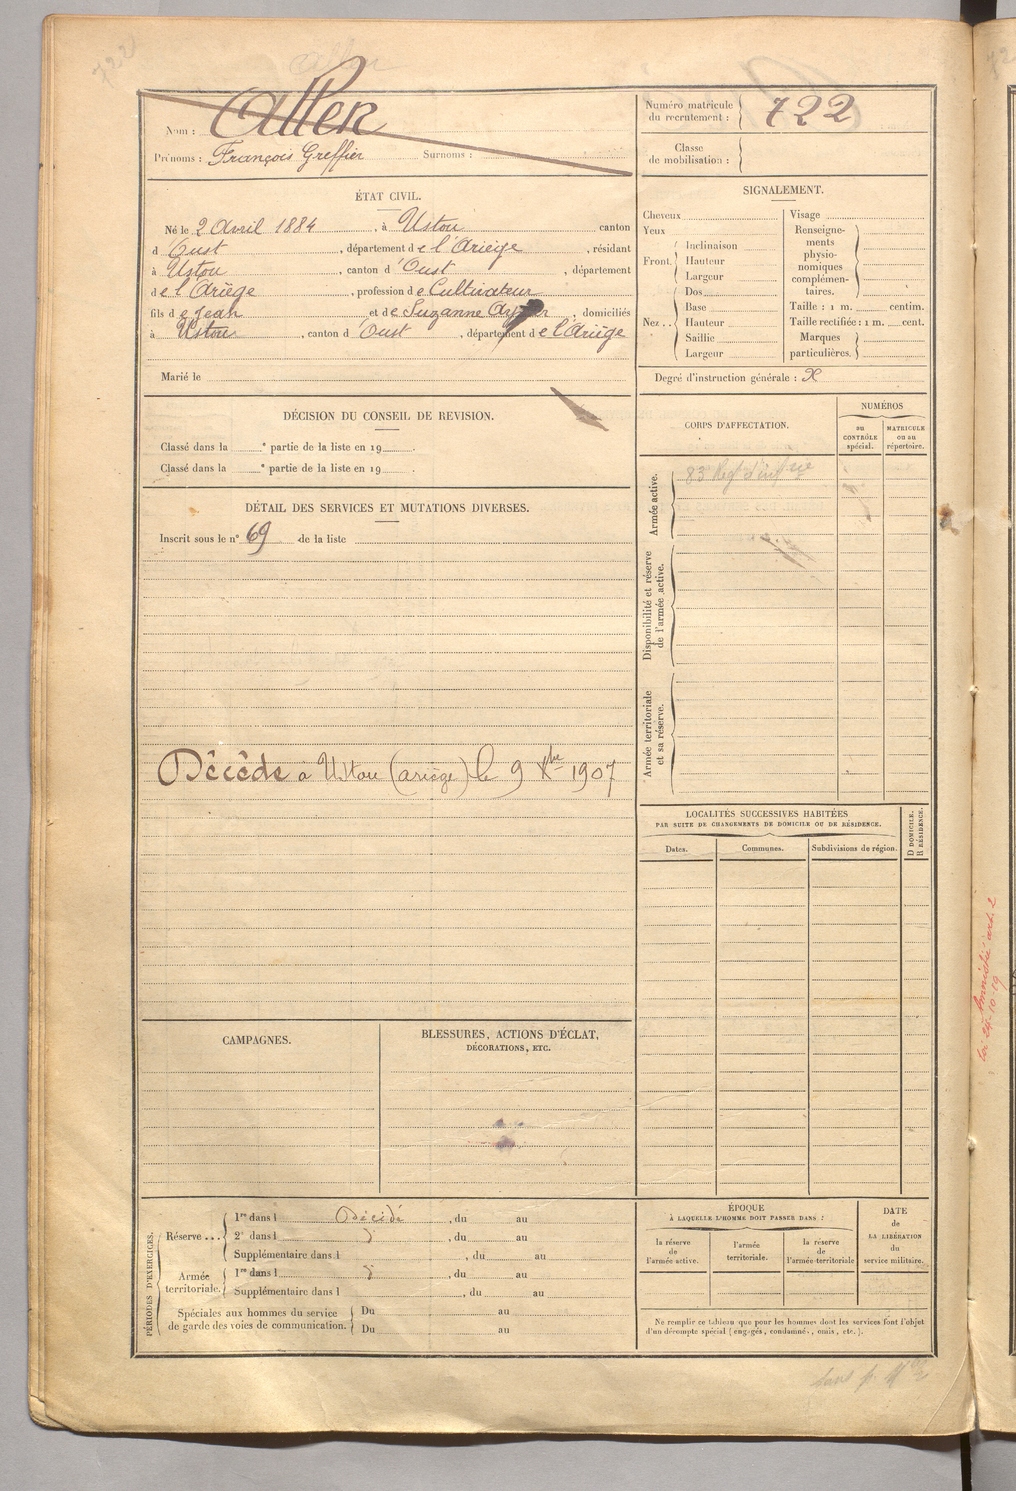 722
Aller
Nom : Aller
Prénoms : François Greffier Surnoms :
Numéro matricule
du recrutement : 722
Classe
de mobilisation :
ÉTAT CIVIL.
Né le 2 Avril 1884, à Ustou canton
d'Oust, département de l'Ariège, résidant
à Ustou, canton d'Oust, département
de l'Ariège, profession de Cultivateur
fils de Jean et de Suzanne, domiciliés
à Ustou, canton d'Oust, département de l'Ariège
Marié le
DÉCISION DU CONSEIL DE REVISION.
Classé dans la e partie de la liste en 19 .
Classé dans la e partie de la liste en 19 .
DÉTAIL DES SERVICES ET MUTATIONS DIVERSES.
Inscrit sous le n° 69 de la liste
Décédé à Ustou (ariège) le 9 Xbre 1907
CAMPAGNES.
BLESSURES, ACTIONS D'ÉCLAT,
DÉCORATIONS, ETC.
SIGNALEMENT.
Cheveux
Yeux
Front. Inclinaison
Hauteur
Largeur
Nez .. Dos
Base
Hauteur
Saillie
Largeur
Visage
Renseigne-
ments
physio-
nomiques
complémen-
taires.
Taille : 1 m. centim.
Taille rectifiée : 1 m. cent.
Marques
particulières.
Degré d'instruction générale : X
CORPS D'AFFECTATION.
NUMÉROS
au
CONTRÔLE
spécial.
MATRICULE
ou au
répertoire.
Armée active.
83e Regt d'infrie
Disponibilité et réserve
de l'armée active.
Armée territoriale
et sa réserve.
LOCALITÉS SUCCESSIVES HABITÉES
PAR SUITE DE CHANGEMENTS DE DOMICILE OU DE RÉSIDENCE.
Dates.
Communes.
Subdivisions de région.
D DOMICILE.
R RÉSIDENCE.
PÉRIODES D'EXERCICES.
Réserve ... 1re dans l Décédé, du au
2e dans l, du au
Supplémentaire dans l, du au
Armée
territoriale. 1re dans l, du au
Supplémentaire dans l, du au
Spéciales aux hommes du service
de garde des voies de communication. Du au
Du au
ÉPOQUE
À LAQUELLE L'HOMME DOIT PASSER DANS :
la réserve
de
l'armée active.
l'armée
territoriale.
la réserve
de
l'armée territoriale
DATE
de
LA LIBÉRATION
du
service militaire.
Ne remplir ce tableau que pour les hommes dont les services font l'objet
d'un décompte spécial (engagés, condamnés, omis, etc.).
Amnistié art. 2
loi 24-10-19